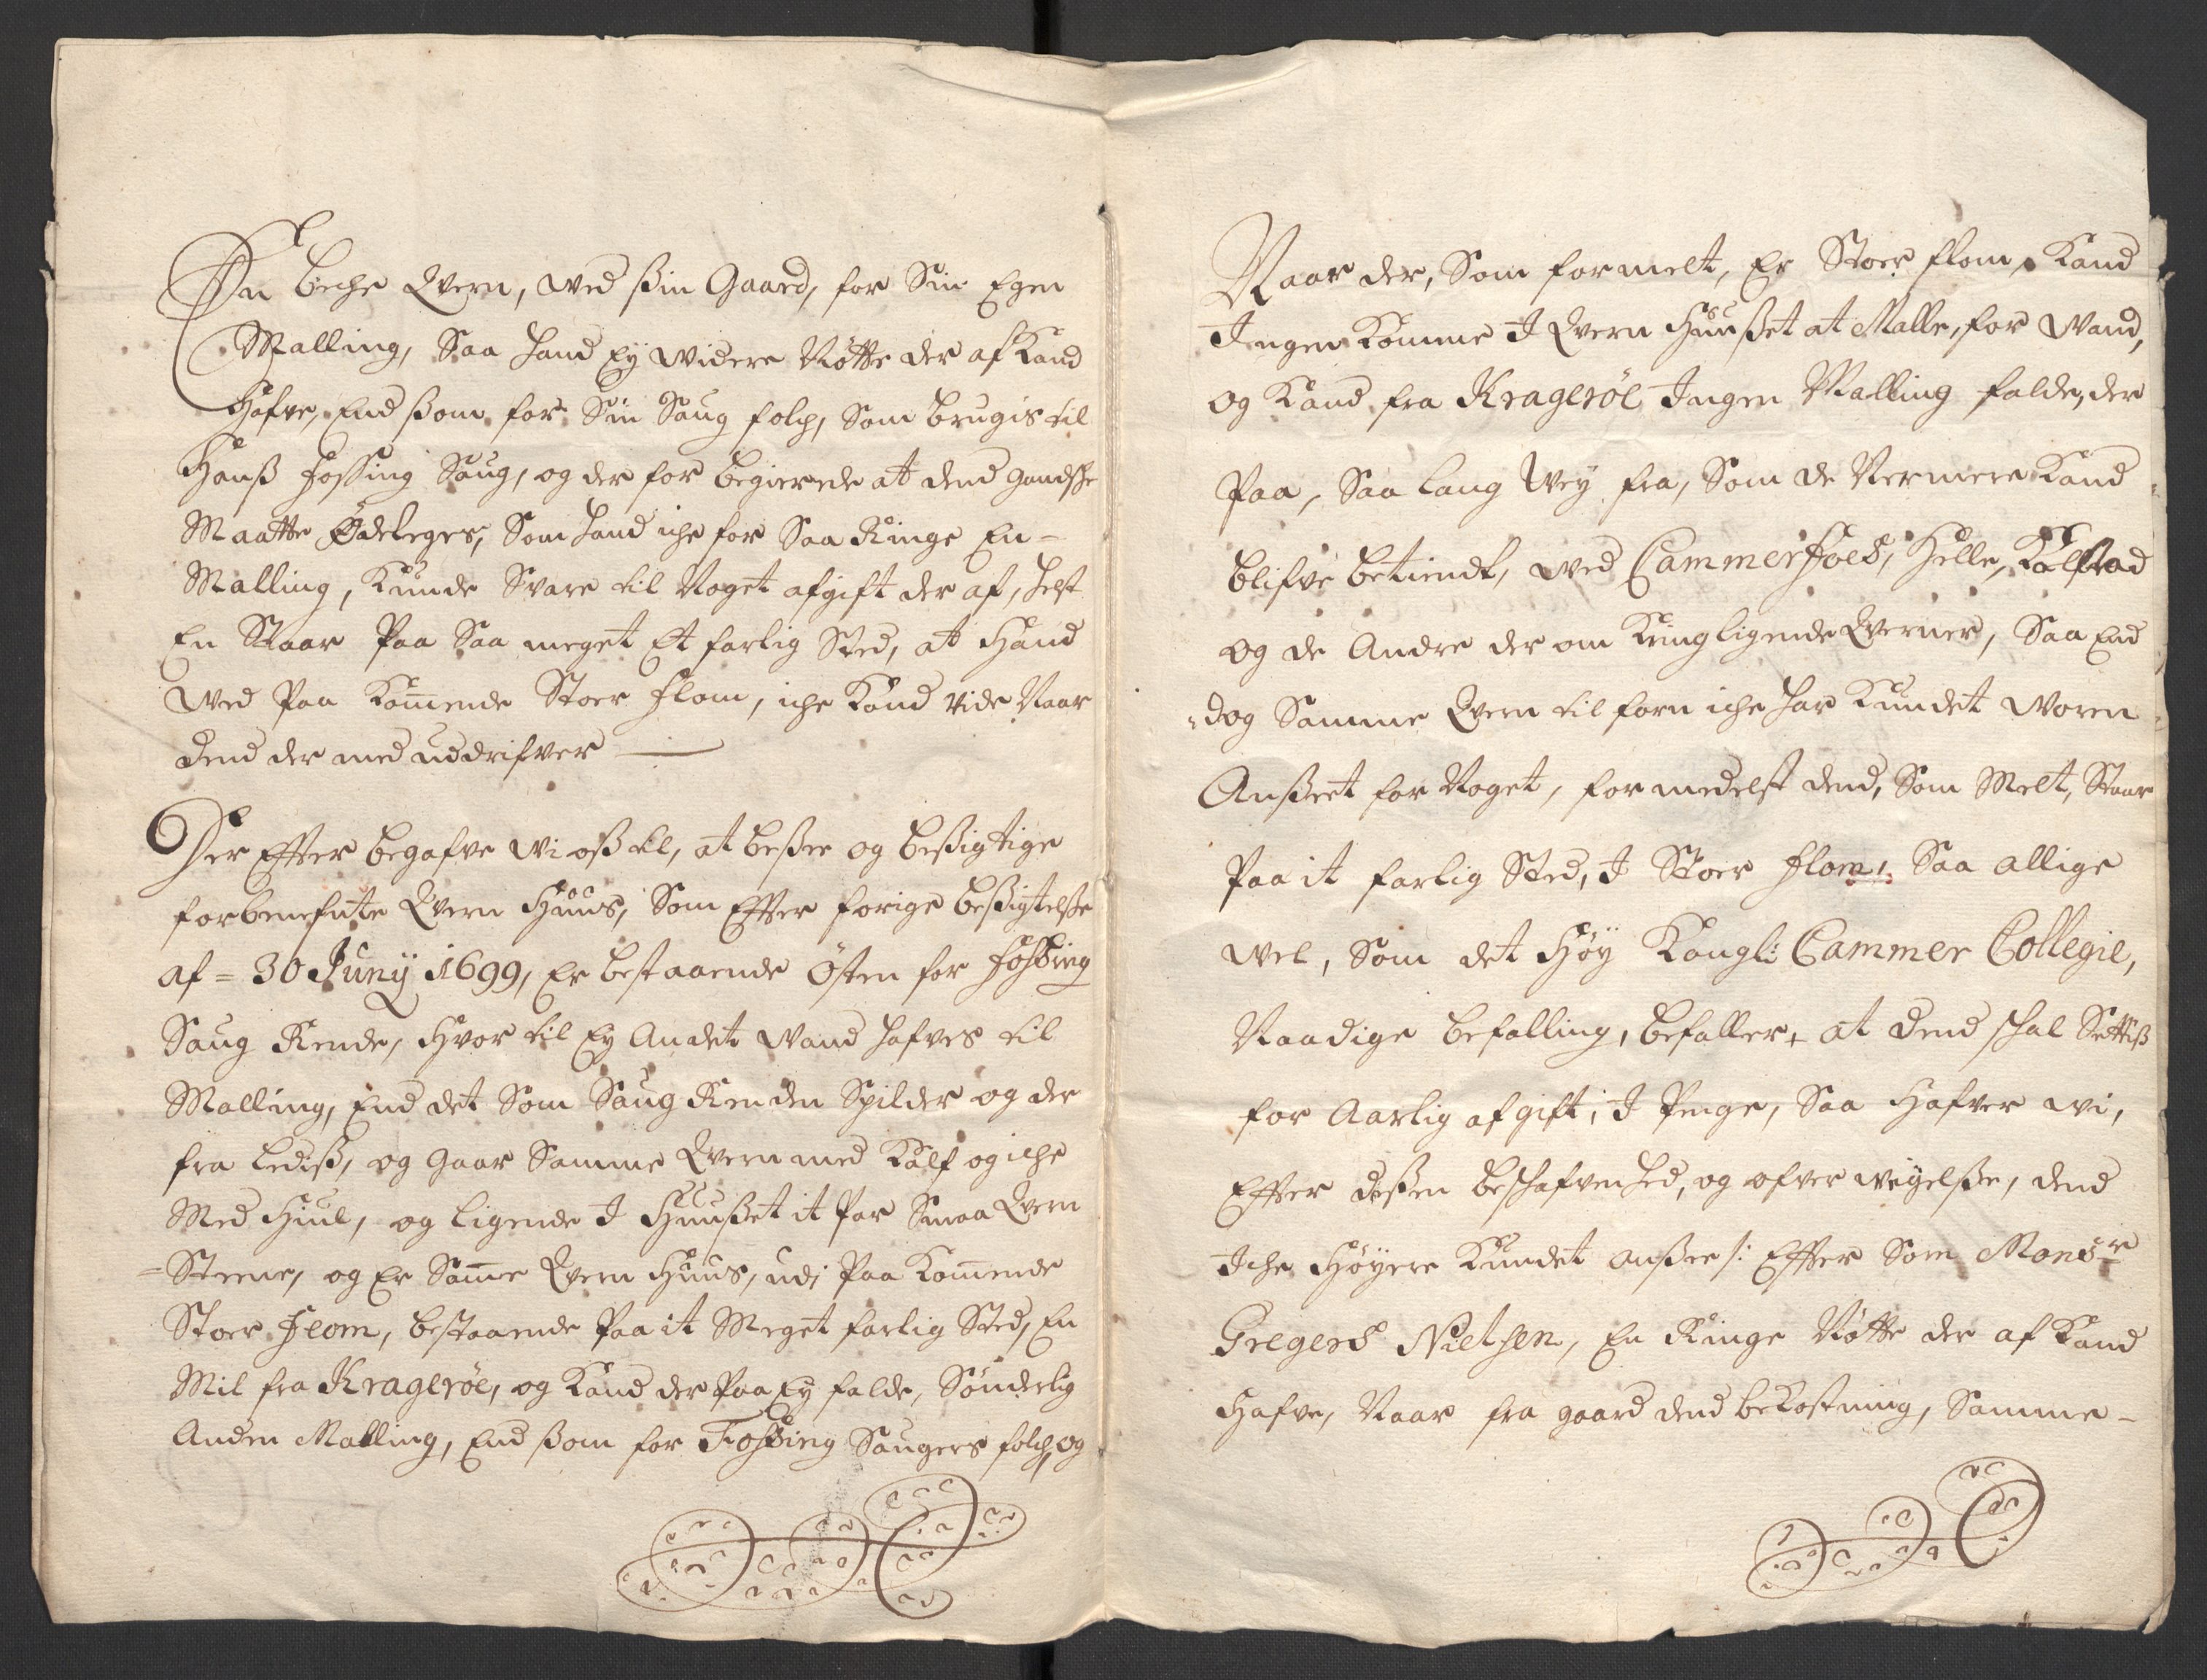 En beche Qvern, ved ßin Gaard, for Sin Egen
Malling, Saa hand Ey widere Nøtte der af Kand
Hafve, End ßom for Sin Saug folch, Som brugis til
Hans Fossing Saug, og der for begierede at dend gandsche
Maatte Ødeleges, Som hand iche for Saa Ringe En-
Malling, Kunde Svare til Noget afgift der af, helst
En Staar Paa Saa meget Et farlig Sted, at Hand
wed Paa Komende Stoer Flom, iche Kand vide Naar
dend der med uddrifver
Der Effter begafve wi oß til, at beßee og beßigtige
forbenefnte Qvern Huus, Som Effter forige beßigtelße
af = 30 Juny 1699, Er bestaaende Østen for Foßing
Saug Rende, Hvor til Ey Andet wand hafves til
Malling, End det Som Saug Renden Spilder og der
fra lediß, og gaar Samme Qvern med Kalf og iche
Med Hiul, og ligende I Huußet it Par Smaa Qvern
=Steene, og Er Same Qvern Huus, udj Paa Komende
Stoer Flom, bestaaende Paa it Meget farlig Sted, En
Mil fra Kragerøe, og Kand der Paa Ey falde, Sønderlig
Anden Malling, End ßom for Foßing Saugers folch, og
Naar der, Som formelt, Er Stoer flom, Kand
Ingen Komme I Qvern Huußet at Malle, for Wand,
og Kand fra Kragerøe Ingen Malling falde, der
Paa, Saa lang Wey fra, Som de Nermere Kand
blifve betiendt, wed Cammerfoes, Helle, Kalstad
og de Andre der om Kring ligende Qverner, Saa End
=dog Samme Qvern til forn iche har Kundet woren
Anßeet for Noget, formedelst dend, Som Melt, Staar
Paa it farlig Sted, I Stoer Flom, Saa allige
wel, Som det Høy Kongl: Cammer Collegie,
Naadige befalling, befaller, at dend schal Settiß
for Aarlig afgift, I Penge, Saa Hafver wi,
Effter deßen beschafvenhed, og ofver weyelße, dend
Iche Høyere Kundet anßee /: Effter Som Monsr
Gregers Nielsen, En Ringe Nøtte der af Kand
Hafve, Naar fra gaard dend bekostning, Samme-